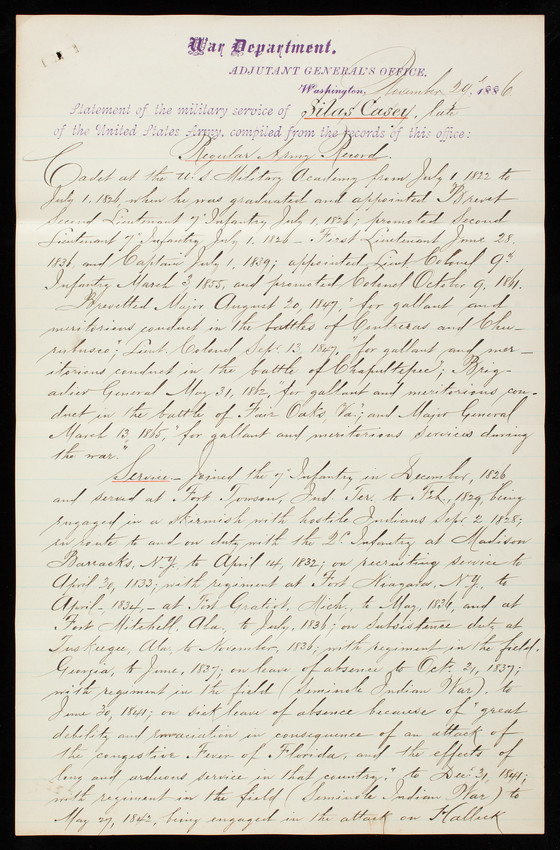 War Department,
ADJUTANT GENERAL'S OFFICE,
Washington, November 29", 1886
Statement of the military service of Silas Casey, late
of the United States Army, compiled from the records of this office:
Regular Army Record.
Cadet at the U.S. Military Academy from July 1, 1822 to
July 1, 1826, when he was graduated and appointed Brevet
Second Lieutenant 7" Infantry July 1, 1826; promoted Second
Lieutenant 7" Infantry July 1, 1826 – First Lieutenant June 28,
1836, and Captain July 1, 1839; appointed Lieut. Colonel 9th
Infantry March 3, 1855, and promoted Colonel October 9, 1861.
Brevetted Major August 20, 1847, "for gallant and
meritorious conduct in the battles of Contreras and Chu-
rubusco"; Lieut. Colonel Sept. 13, 1847, "for gallant and mer-
itorious conduct in the battle of Chapultepec"; Brig-
adier General May 31, 1862, "for gallant and meritorious con-
duct in the battle of Fair Oaks, Va"; and Major General
March 13, 1865, "for gallant and meritorious services during
the war."
Service – Joined the 7" Infantry in December, 1826
and served at Fort Towson, Ind. Ter. to Feb., 1829, being
engaged in a skirmish with hostile Indians Sept. 2 1828;
en route to and on duty with the 2d Infantry at Madison
Barracks, N.Y., to April 14, 1832; on recruiting service to
April 20, 1833; with regiment at Fort Niagara, N.Y., to
April, 1834, – at Fort Gratiot, Mich., to May, 1836, and at
Fort Mitchell, Ala., to July, 1836; on subsistence duty at
Tuskeegee, Ala, to November, 1836; with regiment in the field,
Georgia, to June, 1837; on leave of absence to Oct. 21, 1837;
with regiment in the field (Seminole Indian War), to
June 30, 1841; on sick leave of absence because of "great
debility and emaciation in consequence of an attack of
the congestive Fever of Florida, and the effects of
long and arduous service in that country," to Dec 21, 1841;
with regiment in the field (Seminole Indian War) to
May 27, 1842, being engaged in the attack on Halleck